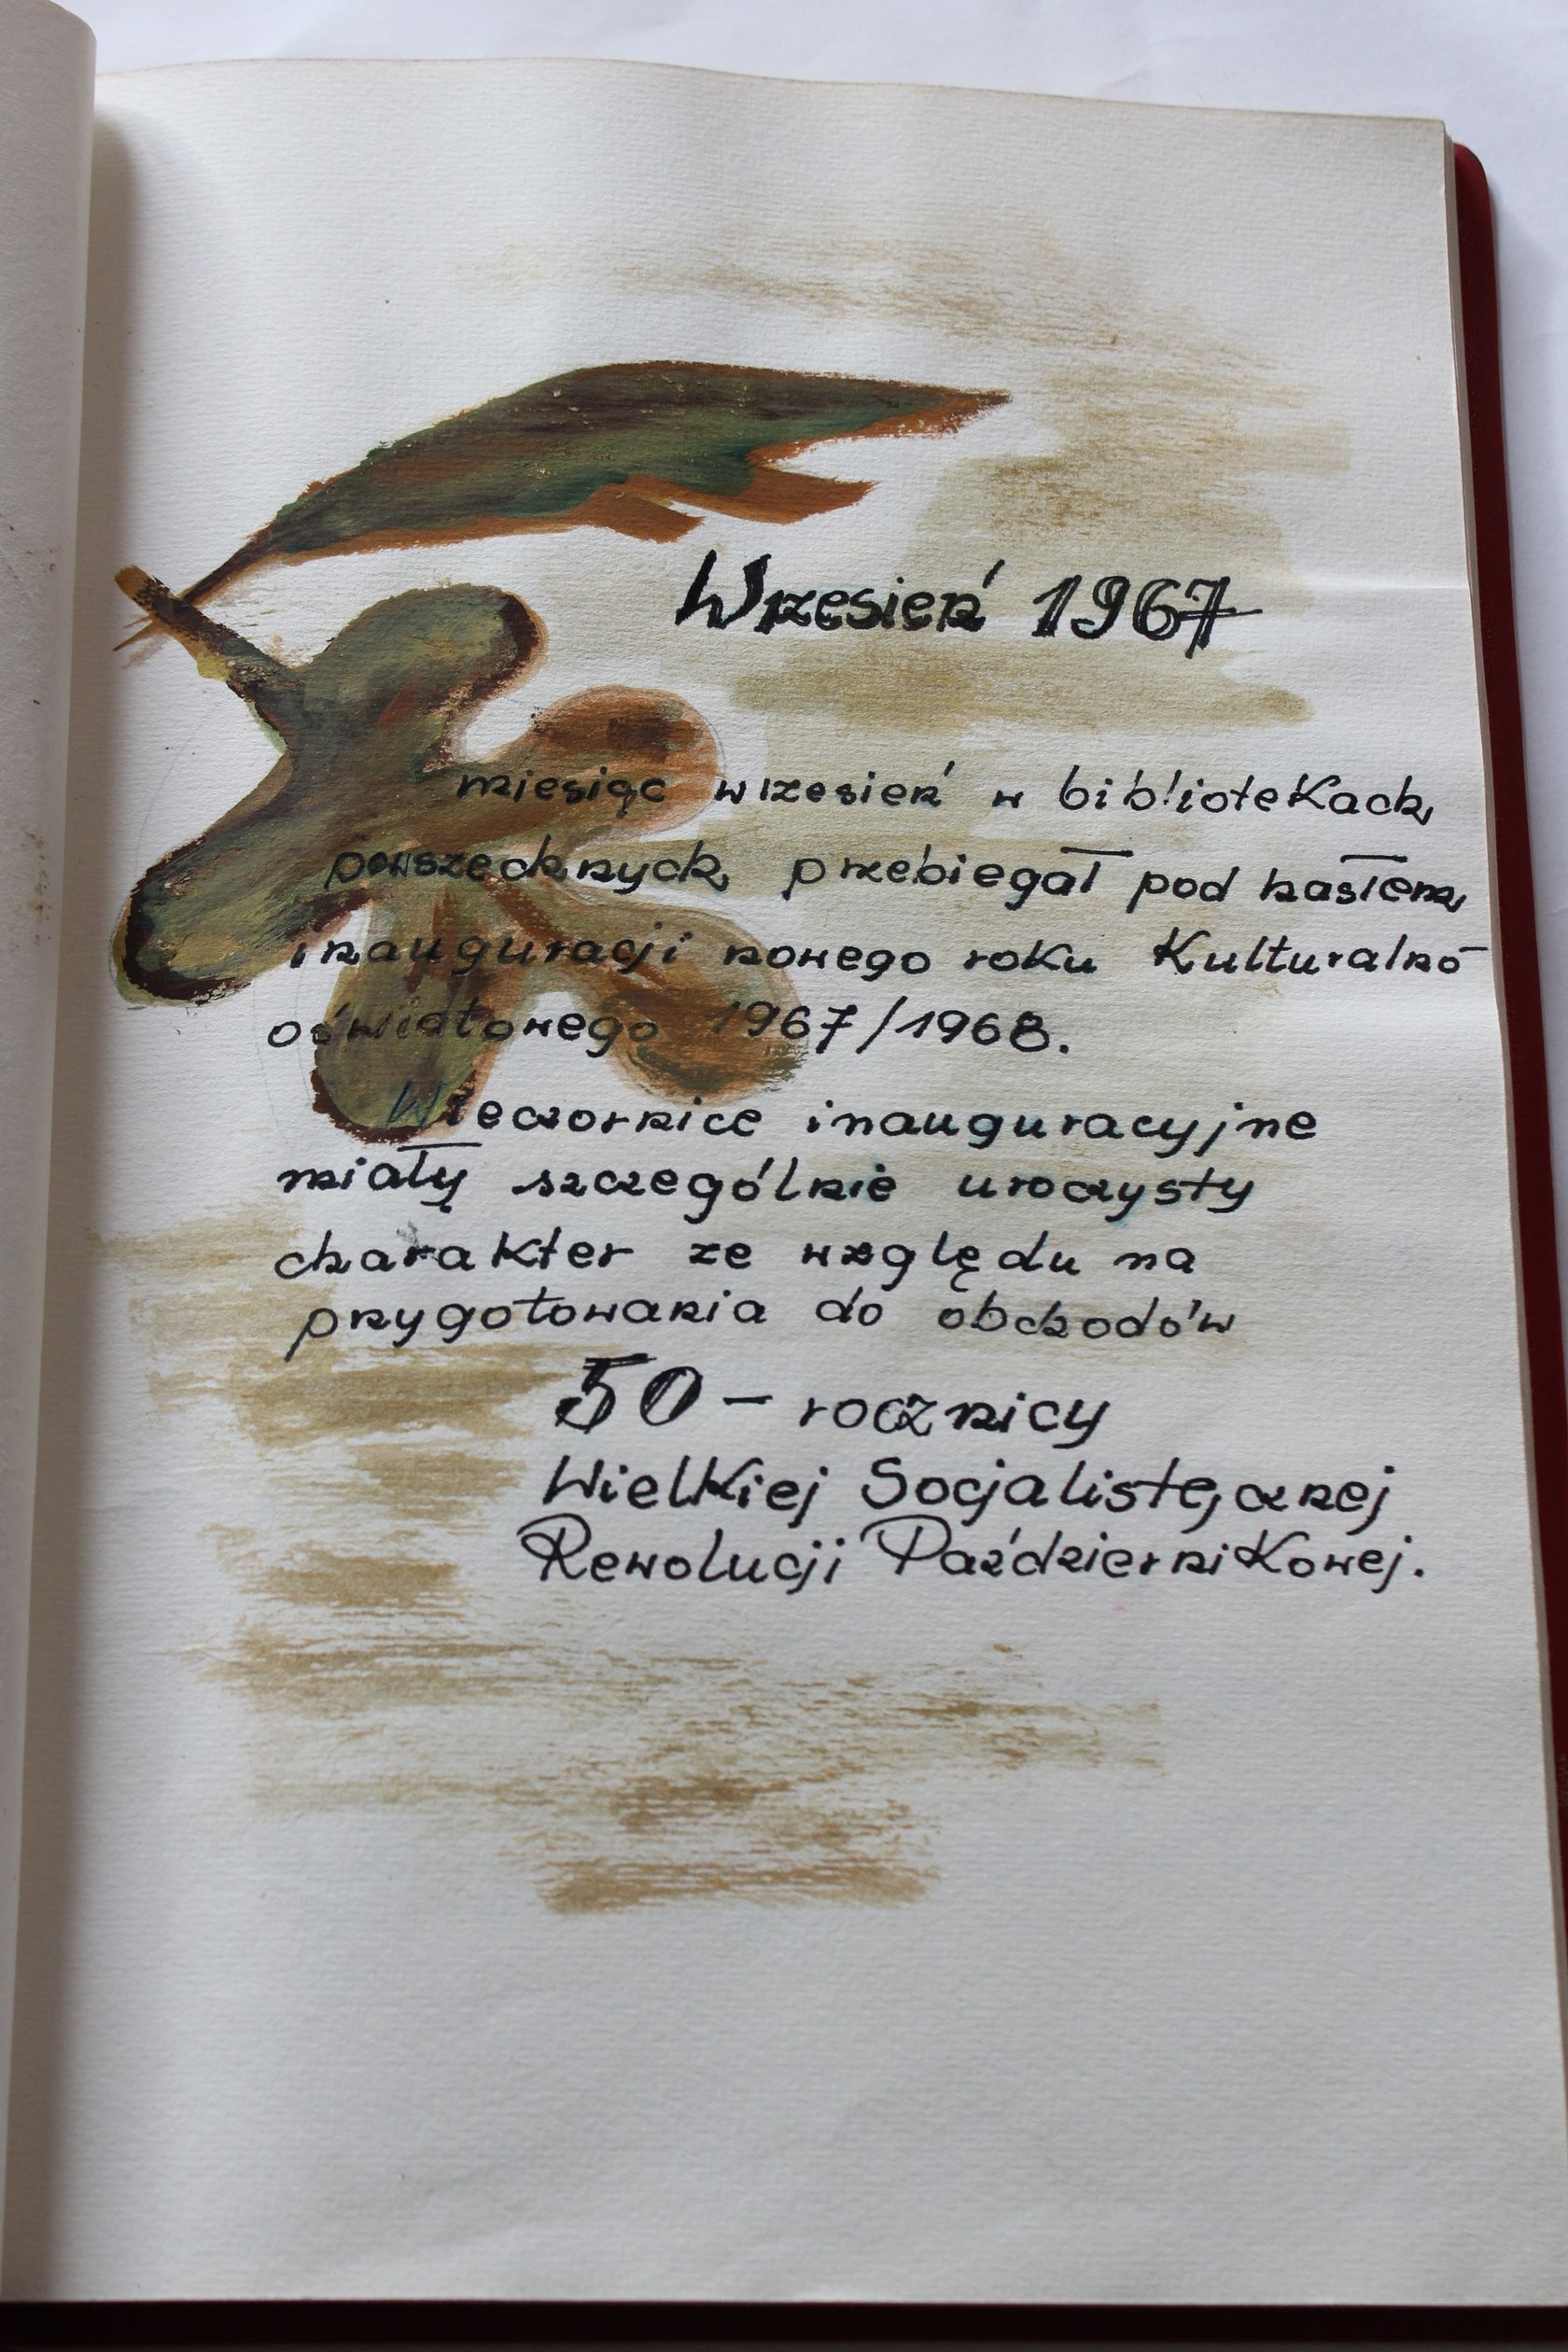 Wrzesień 1967
miesiąc wrzesień w bibliotekach
powszechnych przebiegał pod hasłem
inauguracji nowego roku Kulturalno
oświatowego 1967/1968.
Wieczornice inauguracyjne
miały szczególnie uroczysty
charakter ze względu na
przygotowania do obchodów
50 - rocznicy
Wielkiej Socjalistycznej
Rewolucji Październikowej.